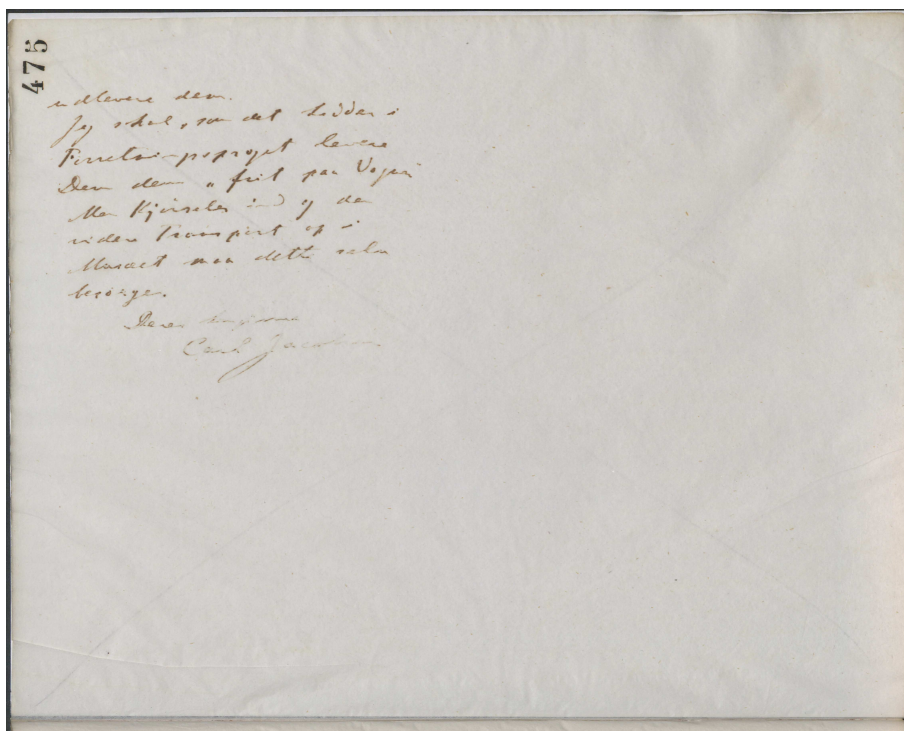 475
udlevere dem.
Jeg skal, som det hedder i
Forretningssproget levere
Dem dem „frit paa Vogn"
Men Kjørselen ind og den
videre Transport op i
Museet maa dette selv
besørge.
Deres hengivne
Carl Jacobsen